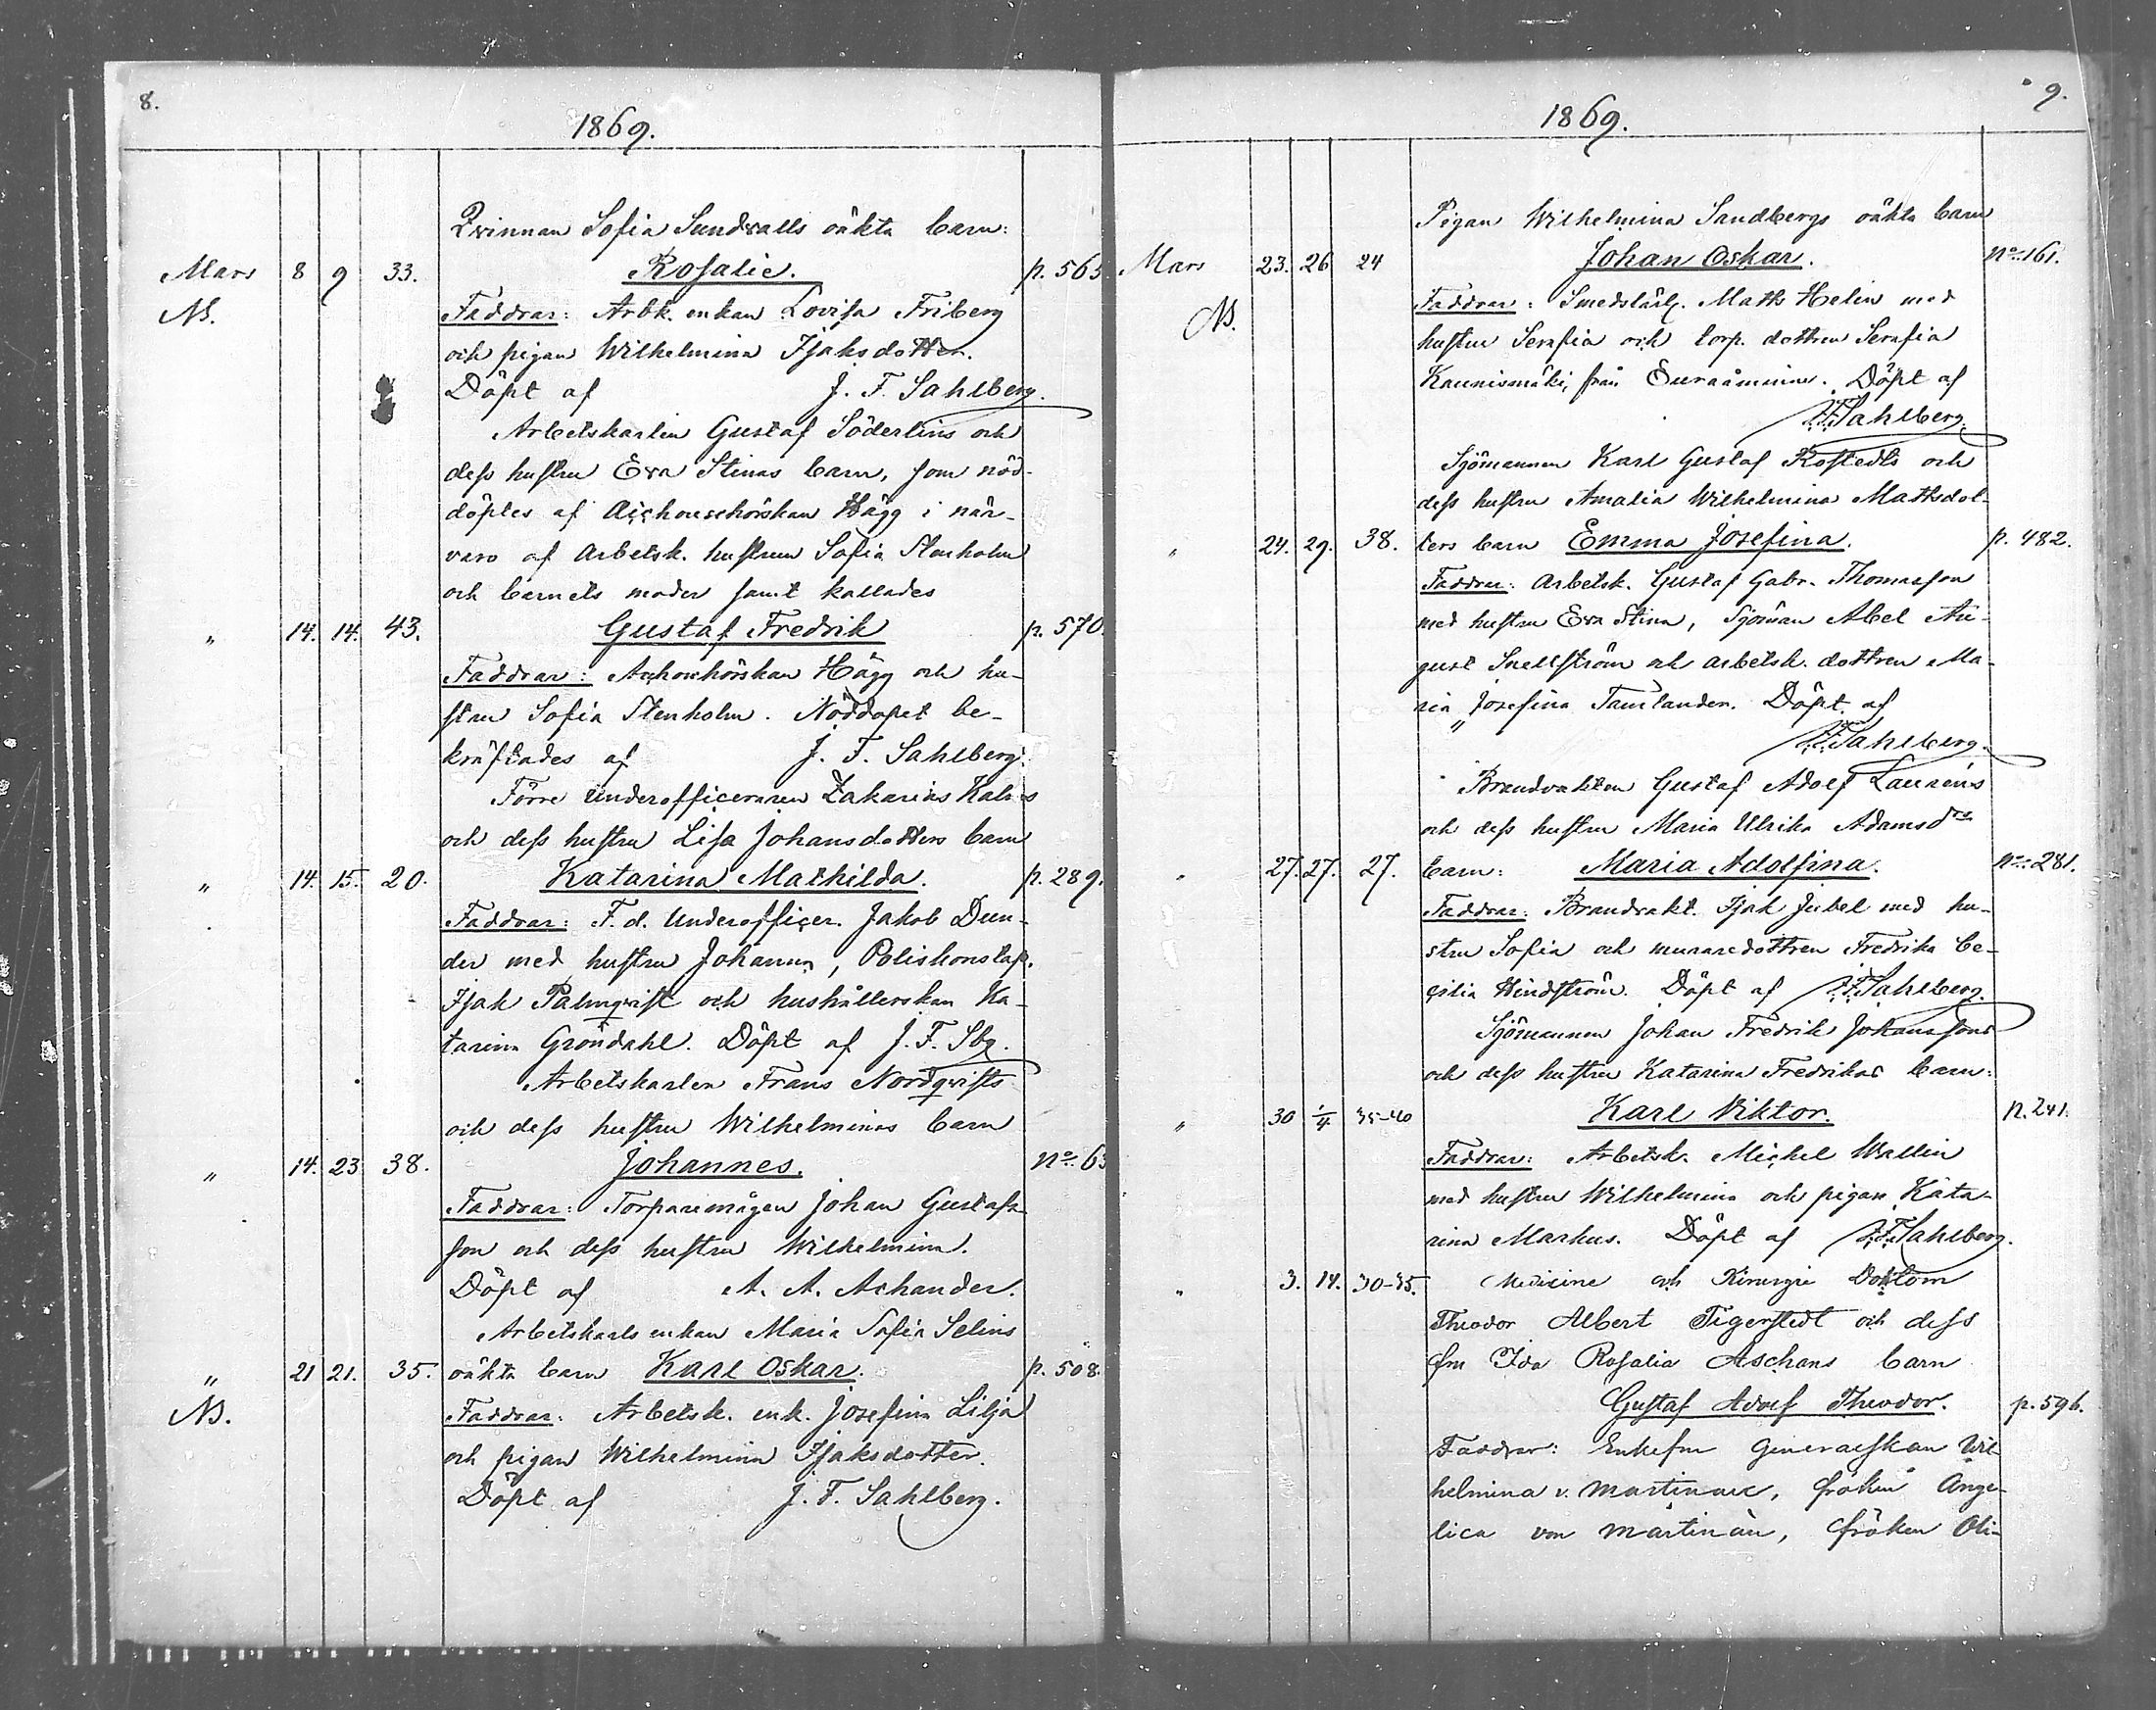 8.
1869.
Qvinnan Sofia Sundvalls oäkta barn:
Mars 8 9 33. Rosalie. p. 565.
NB. Faddrar: Arbk. enkan Lovisa Friberg
och pigan Wilhelmina Isaksdotter.
Döpt af J. F. Sahlberg.
Arbetskarlen Gustaf Söderlins och
dess hustru Eva Stinas barn, som nöd-
döptes af Hägg i när-
varo af Arbetsk. hustrun Sofia Stenholm
och barnets moder samt kallades
" 14. 14. 43. Gustaf Fredrik p. 570.
Faddrar: Hägg och hu-
stru Sofia Stenholm. Nöddopet be-
kräftades af J. F. Sahlberg.
Förre underofficeraren Zakarias
och dess hustru Lisa Johansdotters barn
" 14. 15. 20. Katarina Mathilda. p. 289.
Faddrar: F. d. Underofficer. Jakob Dun-
der med hustru Johanna, Poliskonstap.
Isak Palmqvist och hushållerskan Ka-
tarina Gröndahl. Döpt af J. F. Sbg.
Arbetskarlen Frans Nordqvists
och dess hustru Wilhelminas barn
" 14. 23 38. Johannes. No. 63
Faddrar: Torparemågen Johan Gustafs-
son och dess hustru Wilhelmina.
Döpt af A. A. Achander.
Arbetskarls enkan Maria Sofia Selins
" 21 21. 35. oäkta barn Karl Oskar. p. 508.
NB. Faddrar: Arbetsk. enk. Josefina Lilja
och pigan Wilhelmina Isaksdotter.
Döpt af J. F. Sahlberg.
9.
1869.
Pigan Wilhelmina Sandbergs oäkta barn
Mars 23. 26 24 Johan Oskar. No. 161.
NB. Faddrar: Smedslärl. Maths Helin med
hustru Serafia och torp. dottren Serafia
Kaunismäki, från Euraåminne. Döpt af
J. F. Sahlberg.
Sjömannen Karl Gustaf Rostedts och
dess hustru Amalia Wilhelmina Mathsdot-
" 24. 29. 38. ters barn Emma Josefina. p. 482.
Faddrar: Arbetsk. Gustaf Gabr. Thomasson
med hustru Eva Stina, Sjöman Abel Au-
gust Snellström och arbetsk. dottren Ma-
ria Josefina Tamlander. Döpt af
J. F. Sahlberg.
Brandvakten Gustaf Adolf Lauréns
och dess hustru Maria Ulrika Adamsdrs
" 27. 27. 27. barn: Maria Adolfina. No. 281.
Faddrar: Brandvakt. Isak Jubel med hu-
stru Sofia och muraredottren Fredrika Ce-
cilia Windström. Döpt af J. F. Sahlberg.
Sjömannen Johan Fredrik Johanssons
och dess hustru Katarina Fredrikas barn:
" 30 1/4 35-40 Karl Viktor. p. 241.
Faddrar: Arbetsk. Michel Wallin
med hustru Wilhelmina och pigan Kata-
rina Markus. Döpt af J. F. Sahlberg.
" 3. 14. 30-35. Medicine och Kirurgie Doktorn
Theodor Albert Tigerstedt och dess
fru Ida Rosalia Aschans barn
Gustaf Adolf Theodor. p. 596.
Faddrar: Enkefru Generalskan Wil-
helmina v. Martinau, fröken Ange-
lica von Martinau, fröken Oli-